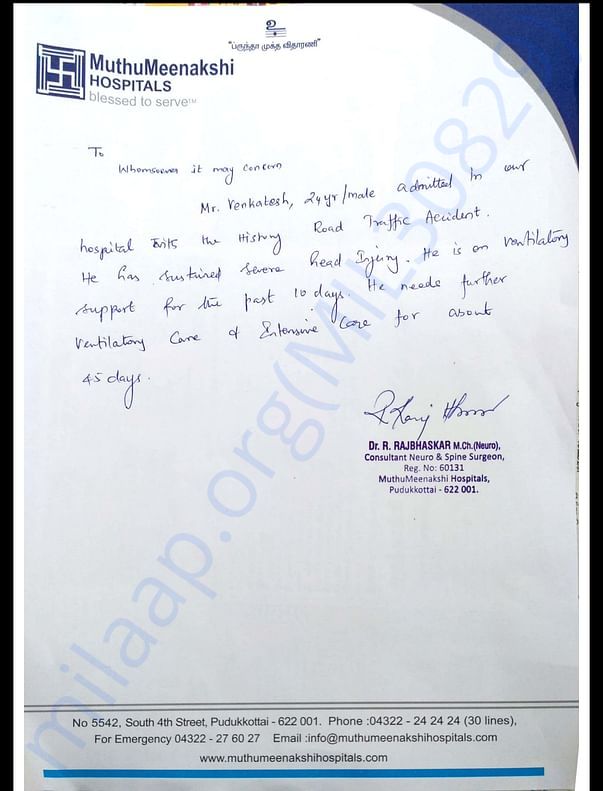 உ
"ப்ருந்தா முக்த விதாரணி"
MuthuMeenakshi
HOSPITALS
blessed to serve™
To
Whomsoever it may concern
Mr. Venkatesh, 24yr/male admitted in our
hospital with the History Road Traffic Accident.
He has sustained severe head Injury. He is on ventilatory
support for the past 10 days. He needs further
Ventilatory Care & Intensive Care for about
45 days.
Dr. R. RAJBHASKAR M.Ch.(Neuro),
Consultant Neuro & Spine Surgeon,
Reg. No: 60131
MuthuMeenakshi Hospitals,
Pudukkottai - 622 001.
milaap.org(MIL30829
No 5542, South 4th Street, Pudukkottai - 622 001. Phone :04322 - 24 24 24 (30 lines),
For Emergency 04322 - 27 60 27 Email :info@muthumeenakshihospitals.com
www.muthumeenakshihospitals.com